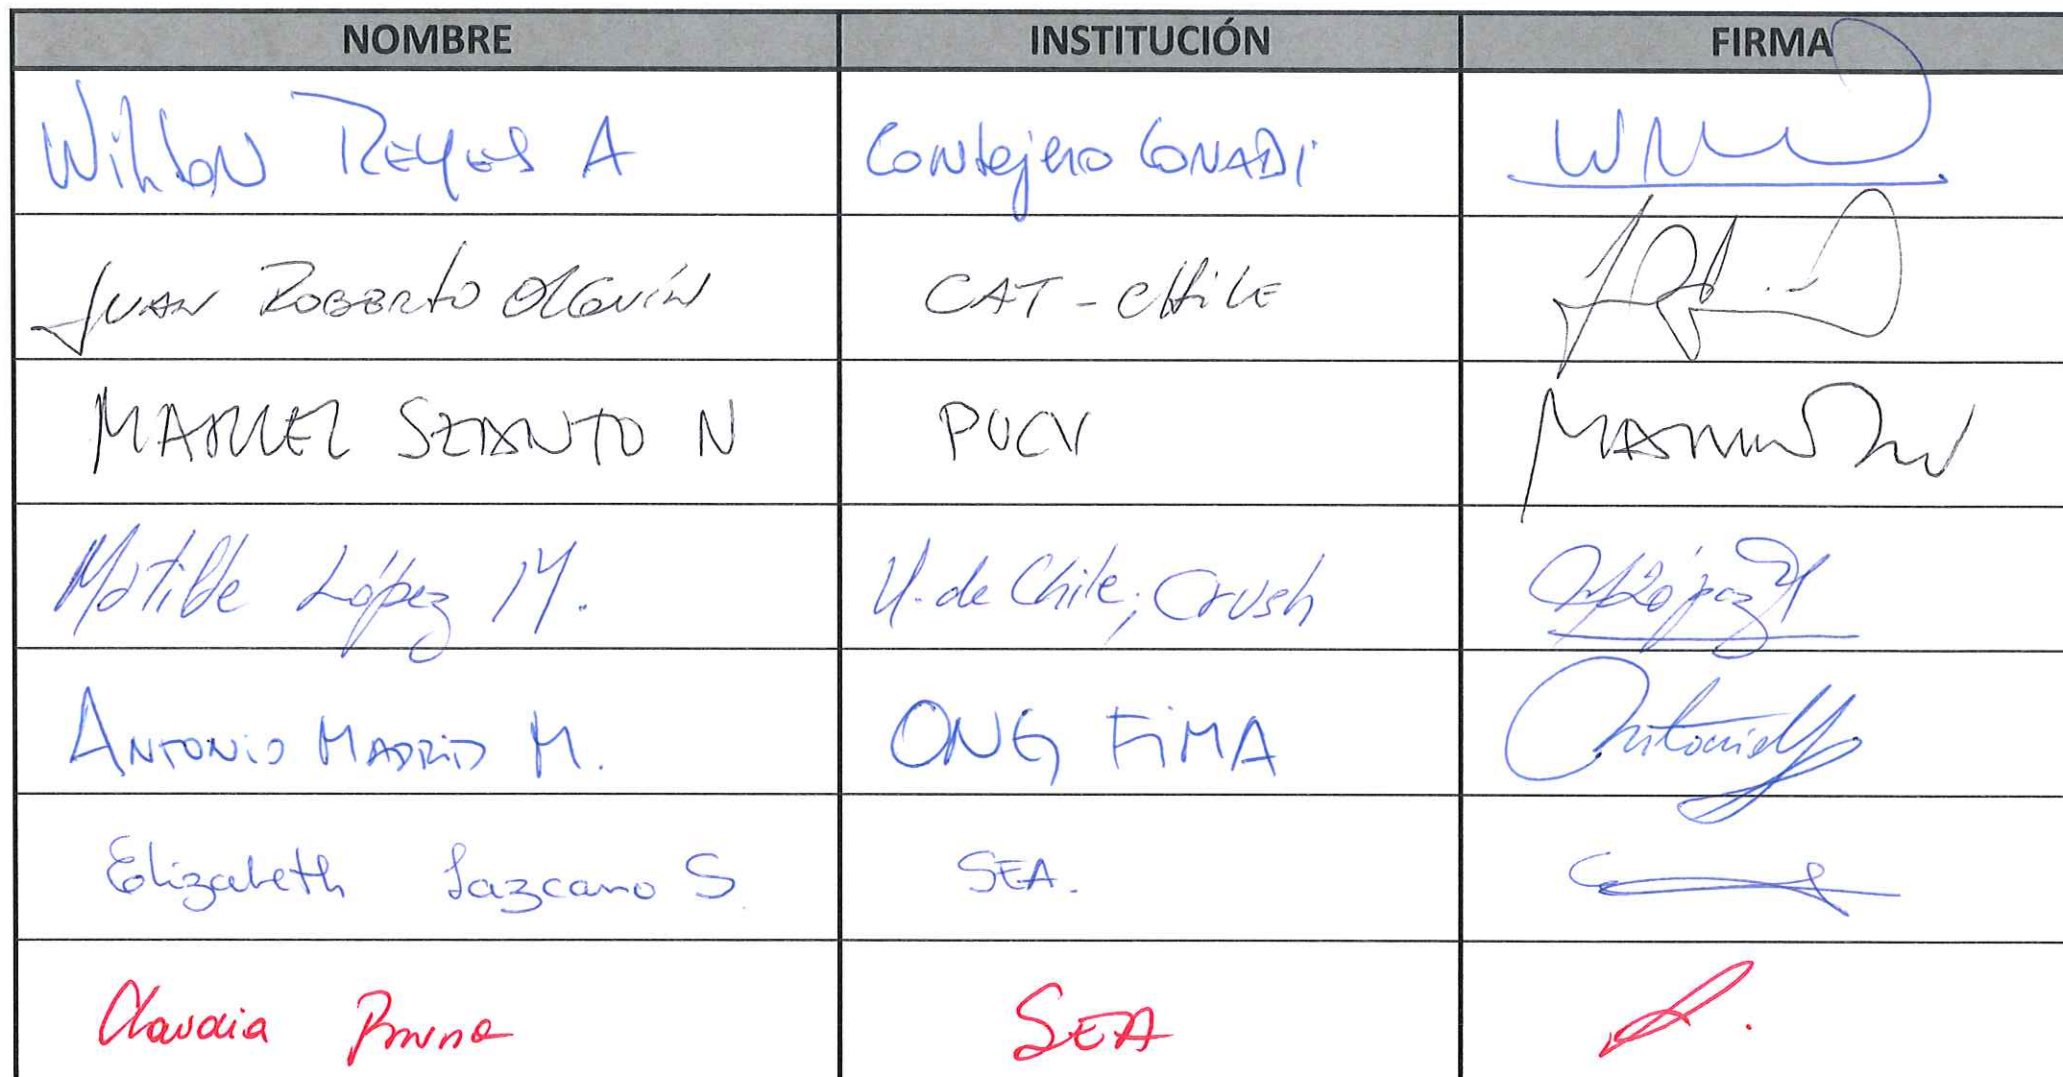 NOMBRE INSTITUCIÓN FIRMA
Wilson Reyes A Consejero CONADI
JUAN ROBERTO OLGUÍN CAT - CHILE
MANUEL SZANTO N PUCV
Matilde López M. U. de Chile; Crush MLópezM
ANTONIO MADRID M. ONG FiMA
Elizabeth Lazcano S. SEA.
Claudia Bruna SEA